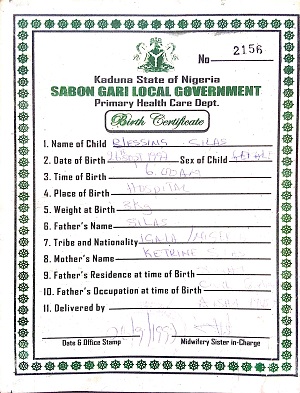 No 2156
Kaduna State of Nigeria
SABON GARI LOCAL GOVERNMENT
Primary Health Care Dept.
Birth Certificate
1. Name of Child BLESSING SILAS
2. Date of Birth Sex of Child
3. Time of Birth 6.00AM
4. Place of Birth HOSPITAL
5. Weight at Birth 3kg
6. Father's Name SILAS
7. Tribe and Nationality IGALA/
8. Mother's Name KETRINE
9. Father's Residence at time of Birth
10. Father's Occupation at time of Birth
11. Delivered by
Date & Office Stamp Midwifery Sister in-Charge